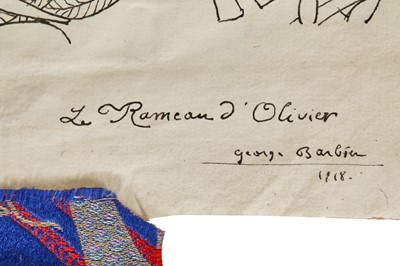 Le Rameau d'Olivier
George Barbier
1918.